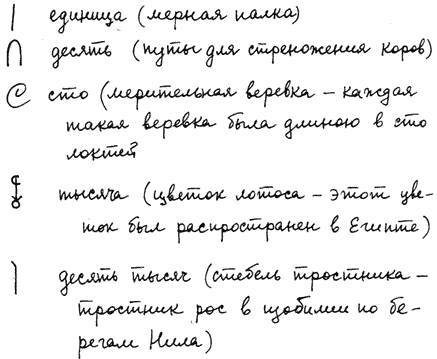 единица (мерная палка)
десять (путы для стреножения коров)
сто (мерительная веревка – каждая
такая веревка была длиною в сто
локтей
тысяча (цветок лотоса – этот цве-
ток был распространен в Египте)
десять тысяч (стебель тростника –
тростник рос в изобилии по бе-
регам Нила)